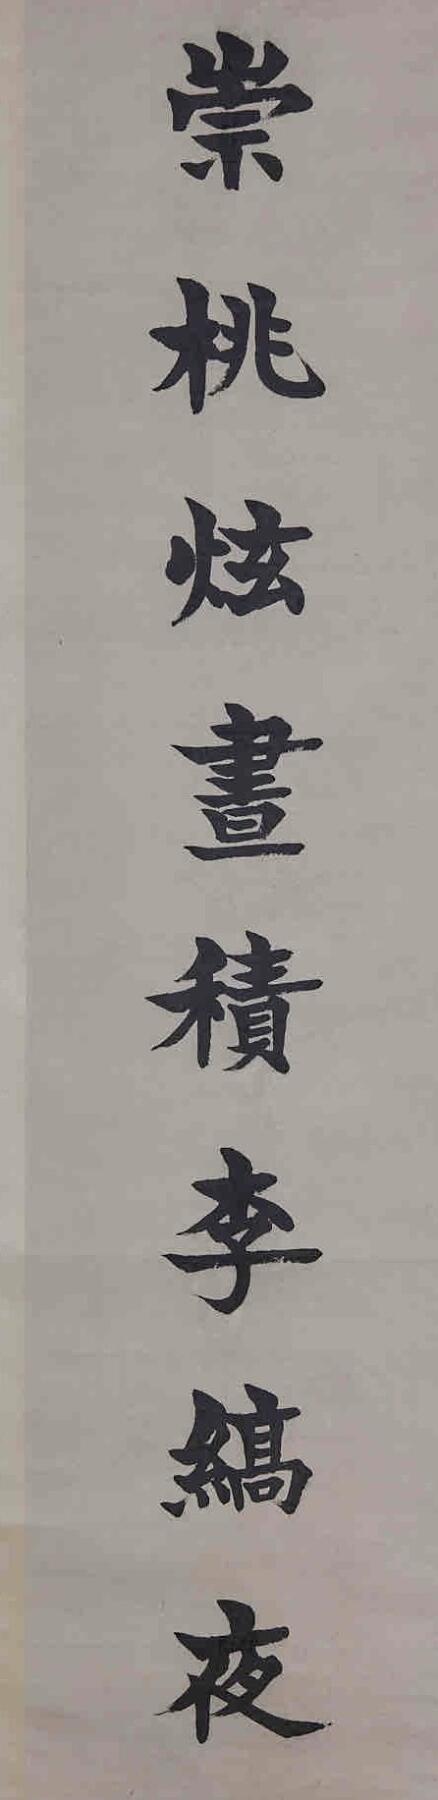 崇桃炫晝積李縞夜